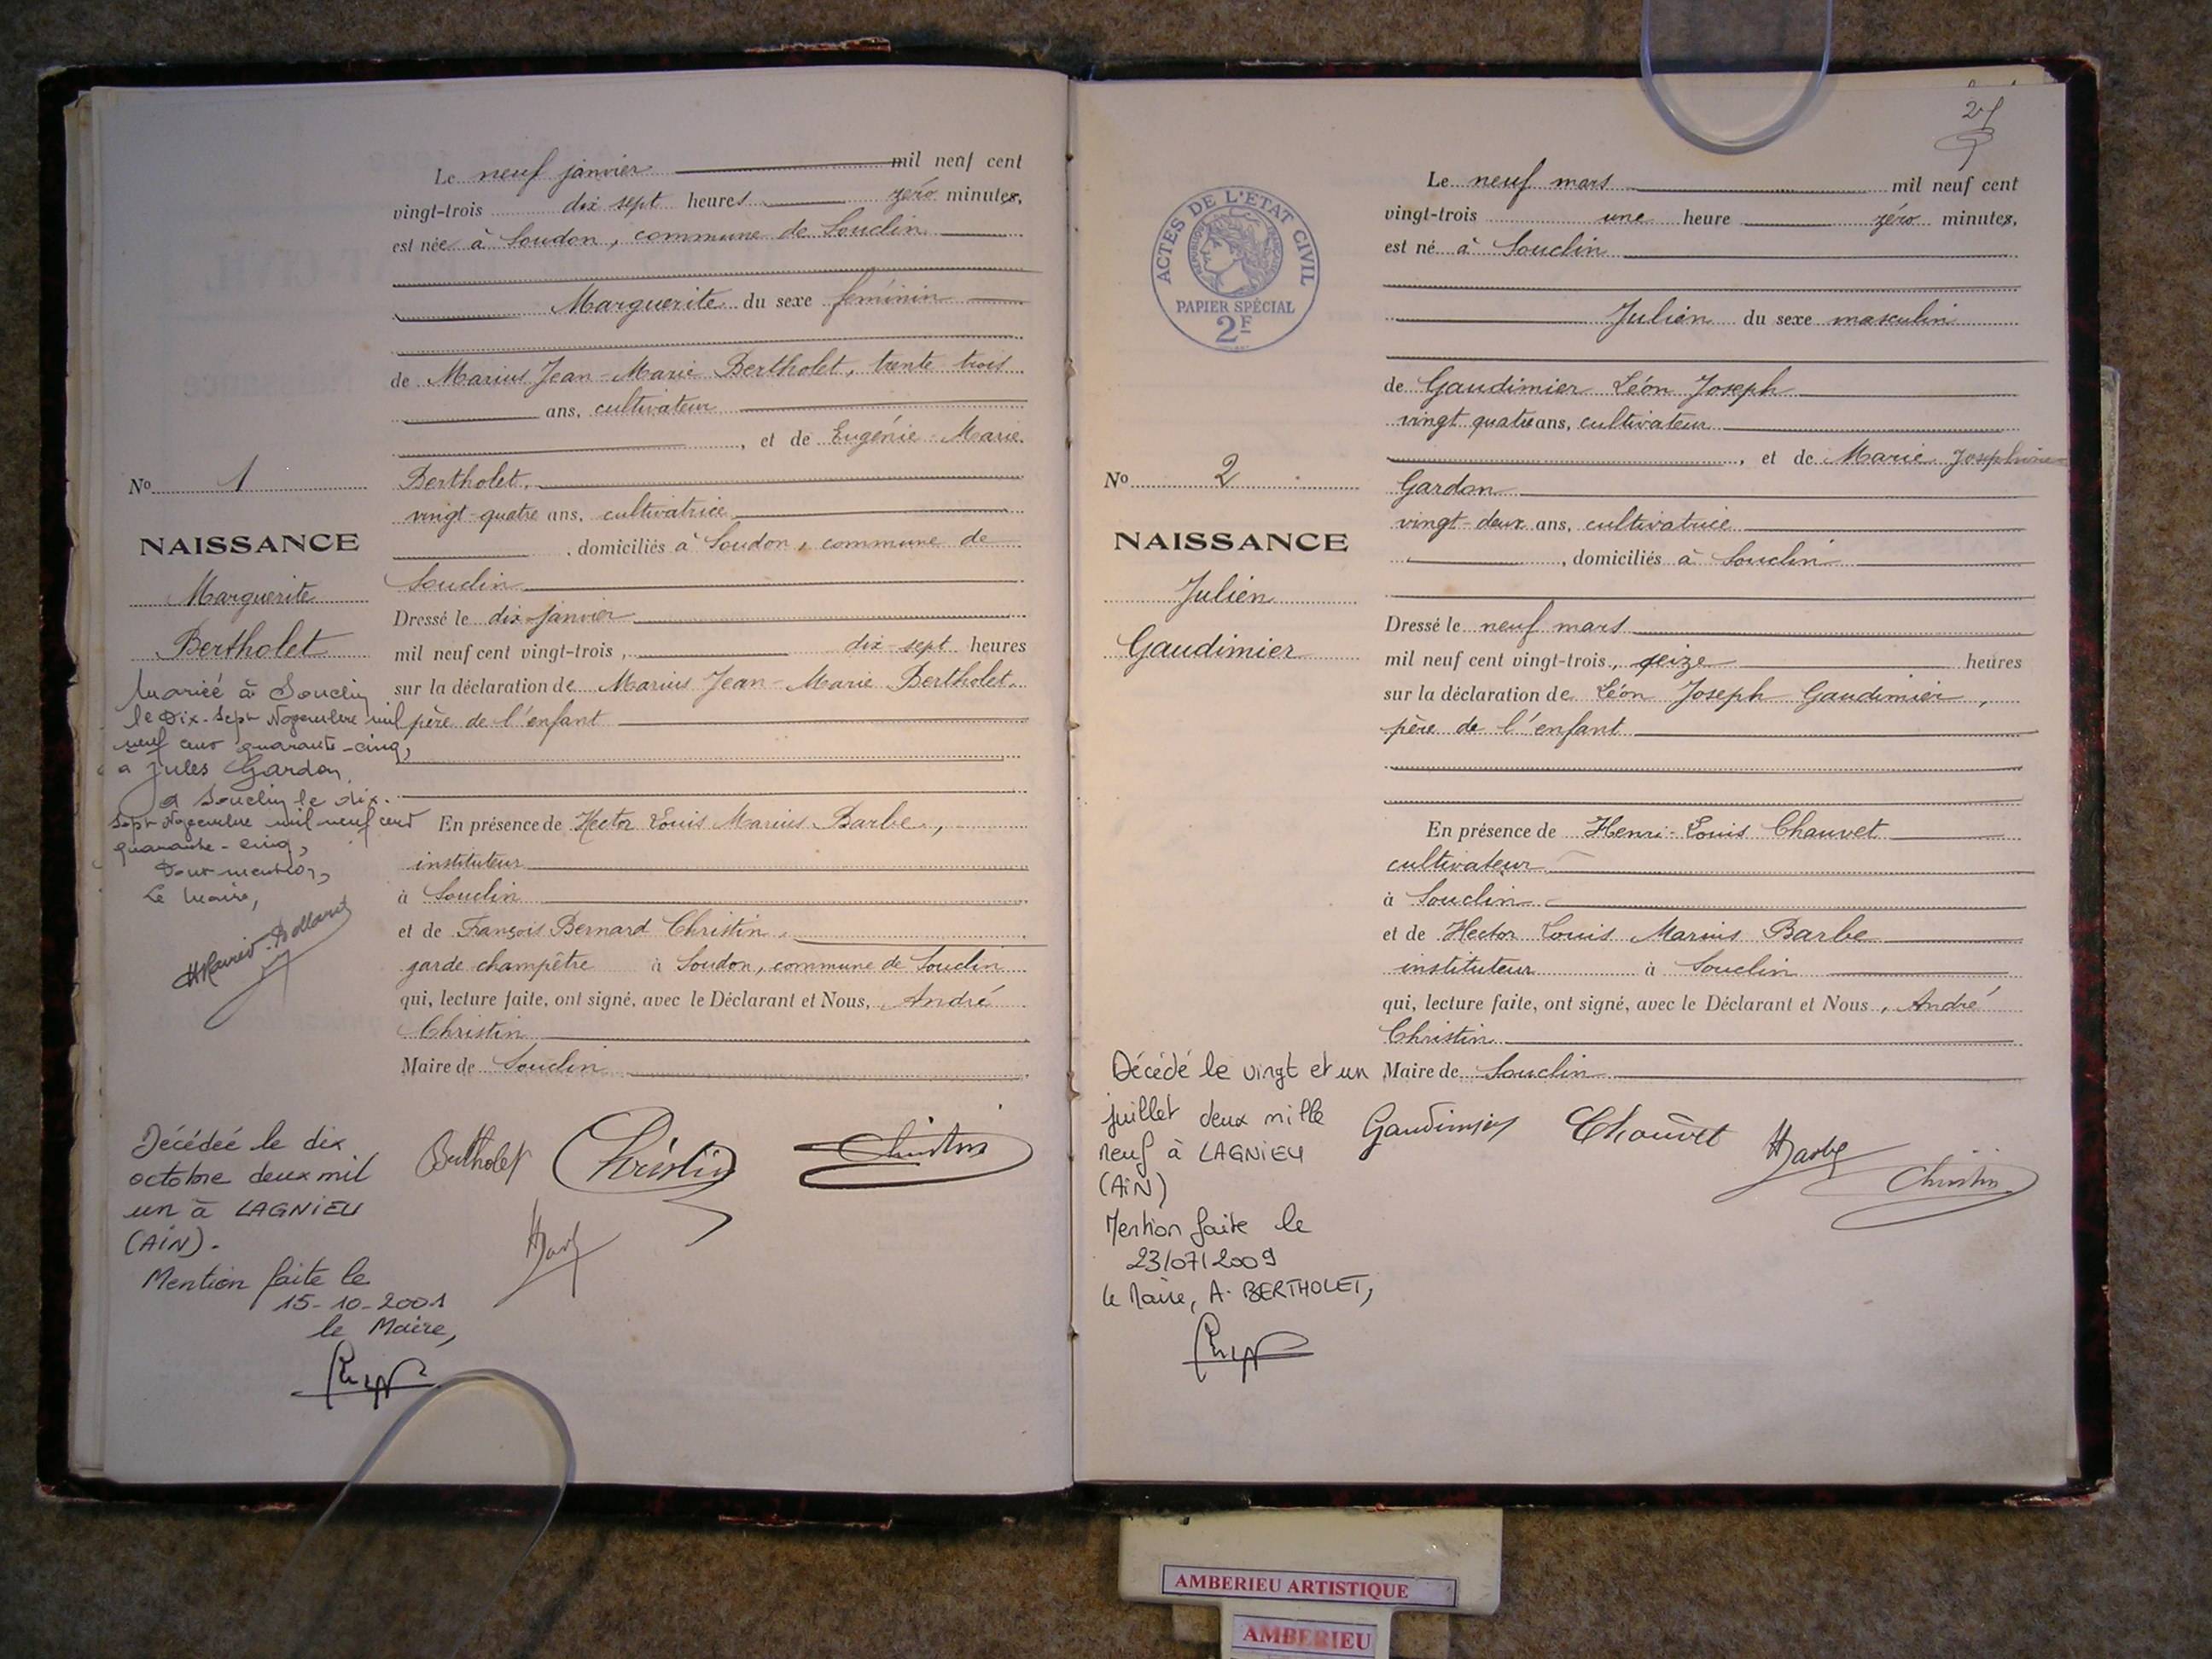 Le neuf janvier mil neuf cent
vingt-trois dix sept heures zéro minutes,
est née à Soudon, commune de Souclin
Marguerite du sexe féminin
de Marius Jean-Marie Bertholet, trente trois
ans, cultivateur
, et de Eugénie Marie
Bertholet,
vingt-quatre ans, cultivatrice
, domiciliés à Soudon, commune de
Souclin
Dressé le dix janvier
mil neuf cent vingt-trois, dix-sept heures
sur la déclaration de Marius Jean-Marie Bertholet,
père de l'enfant
En présence de Hector Louis Marius Barbe,
instituteur
à Souclin
et de François Bernard Christin,
garde champêtre à Soudon, commune de Souclin
qui, lecture faite, ont signé, avec le Déclarant et Nous, André
Christin
Maire de Souclin
Bertholet Christin Christin
HBarbe
No 1
NAISSANCE
Marguerite
Bertholet
Mariée à Souclin
le Dix-Sept Novembre mil
neuf cent quarante-cinq,
a Jules Gardon,
a Souclin le dix-
Sept Novembre mil neuf cent
quarante-cinq,
Pour mention,
Le Maire,
Décédée le dix
octobre deux mil
un à LAGNIEU
(AIN).
Mention faite le
15-10-2001
le Maire,
25
ACTES DE L'ÉTAT CIVIL
RÉPUBLIQUE FRANÇAISE
PAPIER SPÉCIAL
2F
Le neuf mars mil neuf cent
vingt-trois une heure zéro minutes,
est né à Souclin
Julien du sexe masculin
de Gaudimier Léon Joseph
vingt quatre ans, cultivateur
, et de Marie Joséphine
Gardon
vingt-deux ans, cultivatrice
, domiciliés à Souclin
Dressé le neuf mars
mil neuf cent vingt-trois, seize heures
sur la déclaration de Léon Joseph Gaudimier,
père de l'enfant
En présence de Henri-Louis Chauvet
cultivateur
à Souclin
et de Hector Louis Marius Barbe
instituteur à Souclin
qui, lecture faite, ont signé, avec le Déclarant et Nous, André
Christin
Maire de Souclin
Gaudimier Chauvet HBarbe
Christin
No 2
NAISSANCE
Julien
Gaudimier
Décédé le vingt et un
juillet deux mille
neuf à LAGNIEU
(AIN)
Mention faite le
23/07/2009
le Maire, A. BERTHOLET,
AMBERIEU ARTISTIQUE
AMBERIEU